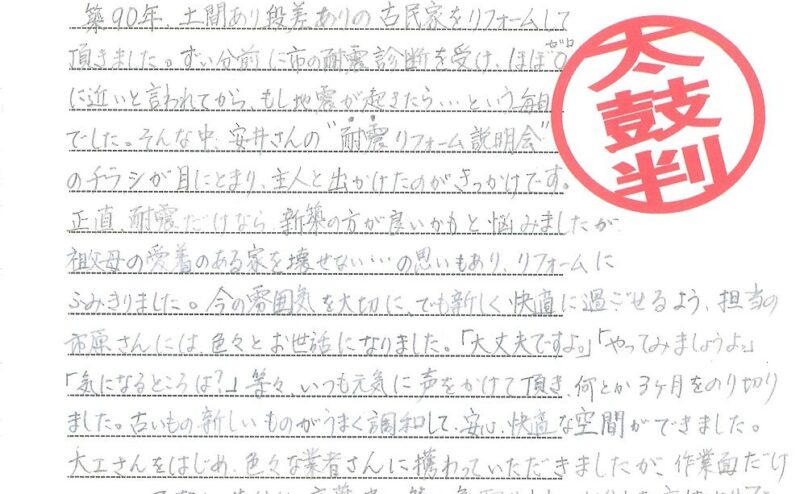 築90年、土間あり段差ありの古民家をリフォームして
頂きました。ずい分前に市の耐震診断を受け、ほぼ"0ゼロ
に近いと言われてから、もし地震が起きたら…という毎日
でした。そんな中、安井さんの"耐震リフォーム説明会"
のチラシが目にとまり、主人と出かけたのがきっかけです。
正直、耐震だけなら新築の方が良いかもと悩みましたが、
祖父母の愛着のある家を壊せない…の思いもあり、リフォームに
ふみきりました。今の雰囲気を大切に、でも新しく快適に過ごせるよう、担当の
市原さんには、色々とお世話になりました。「大丈夫ですよ。」「やってみましょうよ。」
「気になるところは?」等々、いつも元気に声をかけて頂き、何とか3ヶ月をのり切り
ました。古いもの新しいものがうまく調和して、安心、快適な空間ができました。
大工さんをはじめ、色々な業者さんに携わっていただきましたが、作業面だけ
太鼓判